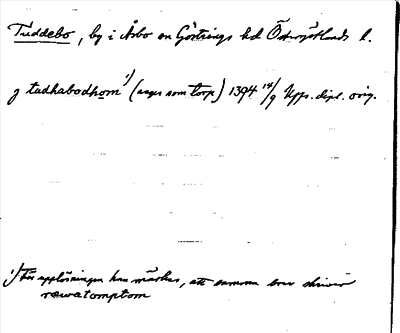 Tuddebo, by i Åsbo sn Göstrings hd Östergötlands l.
j tudhabodhom 1) (anges som torp) 1394 14/9 Upps. dipl. orig.
1) För upplösningen kan märkas, att samma brev skriver
ræwatomptom